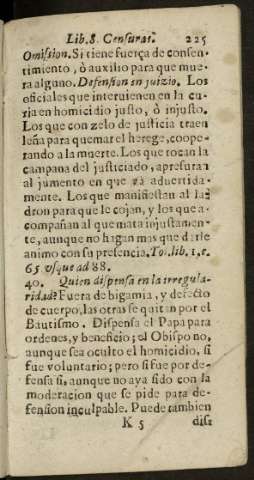 Lib. 8. Censuras. 225
Omission. Si tiene fuerça de consen-
timiento, ò auxilio para que mue-
ra alguno. Defension en juizio. Los
oficiales que interuienen en la cu-
ria en homicidio justo, ò injusto.
Los que con zelo de justicia traen
leña para quemar el herege, coope-
rando a la muerte. Los que tocan la
campana del justiciado, apresuran
al jumento en que và aduertida-
mente. Los que manifiestan al la-
dron para que le cojan, y los que a-
compañan al que mata injustamen-
te, aunque no hagan mas que darle
animo con su presencia. To. lib. 1, c.
65 vsque ad 88.
40. Quien dispensa en la irregula-
ridad? Fuera de bigamia, y defecto
de cuerpo, las otras se quitan por el
Bautismo. Dispensa el Papa para
ordenes, y beneficio; el Obispo no,
aunque sea oculto el homicidio, si
fue voluntario; pero si fue por de-
fensa si, aunque no aya sido con la
moderacion que se pide para de-
fension inculpable. Puede tambien
K 5 dis-